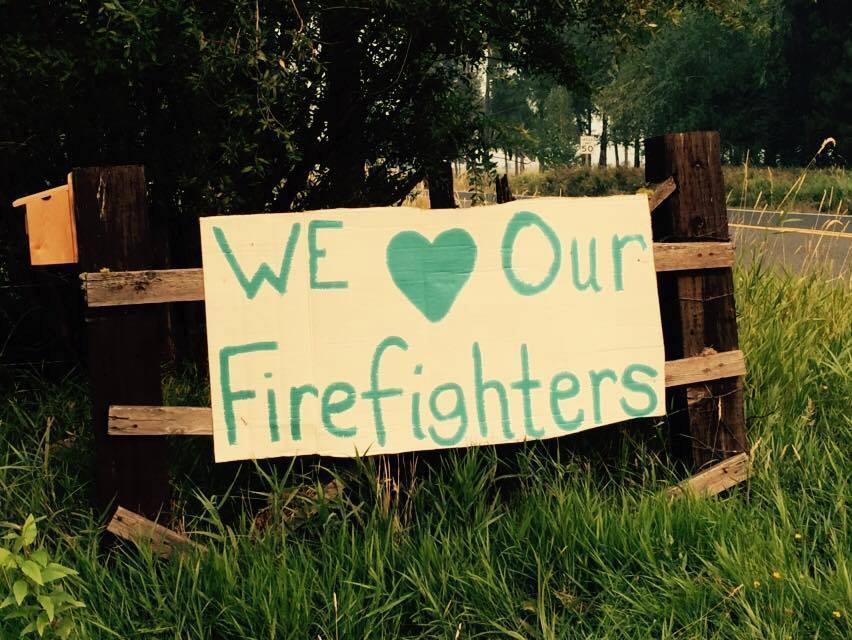 WE ♥ Our
Firefighters